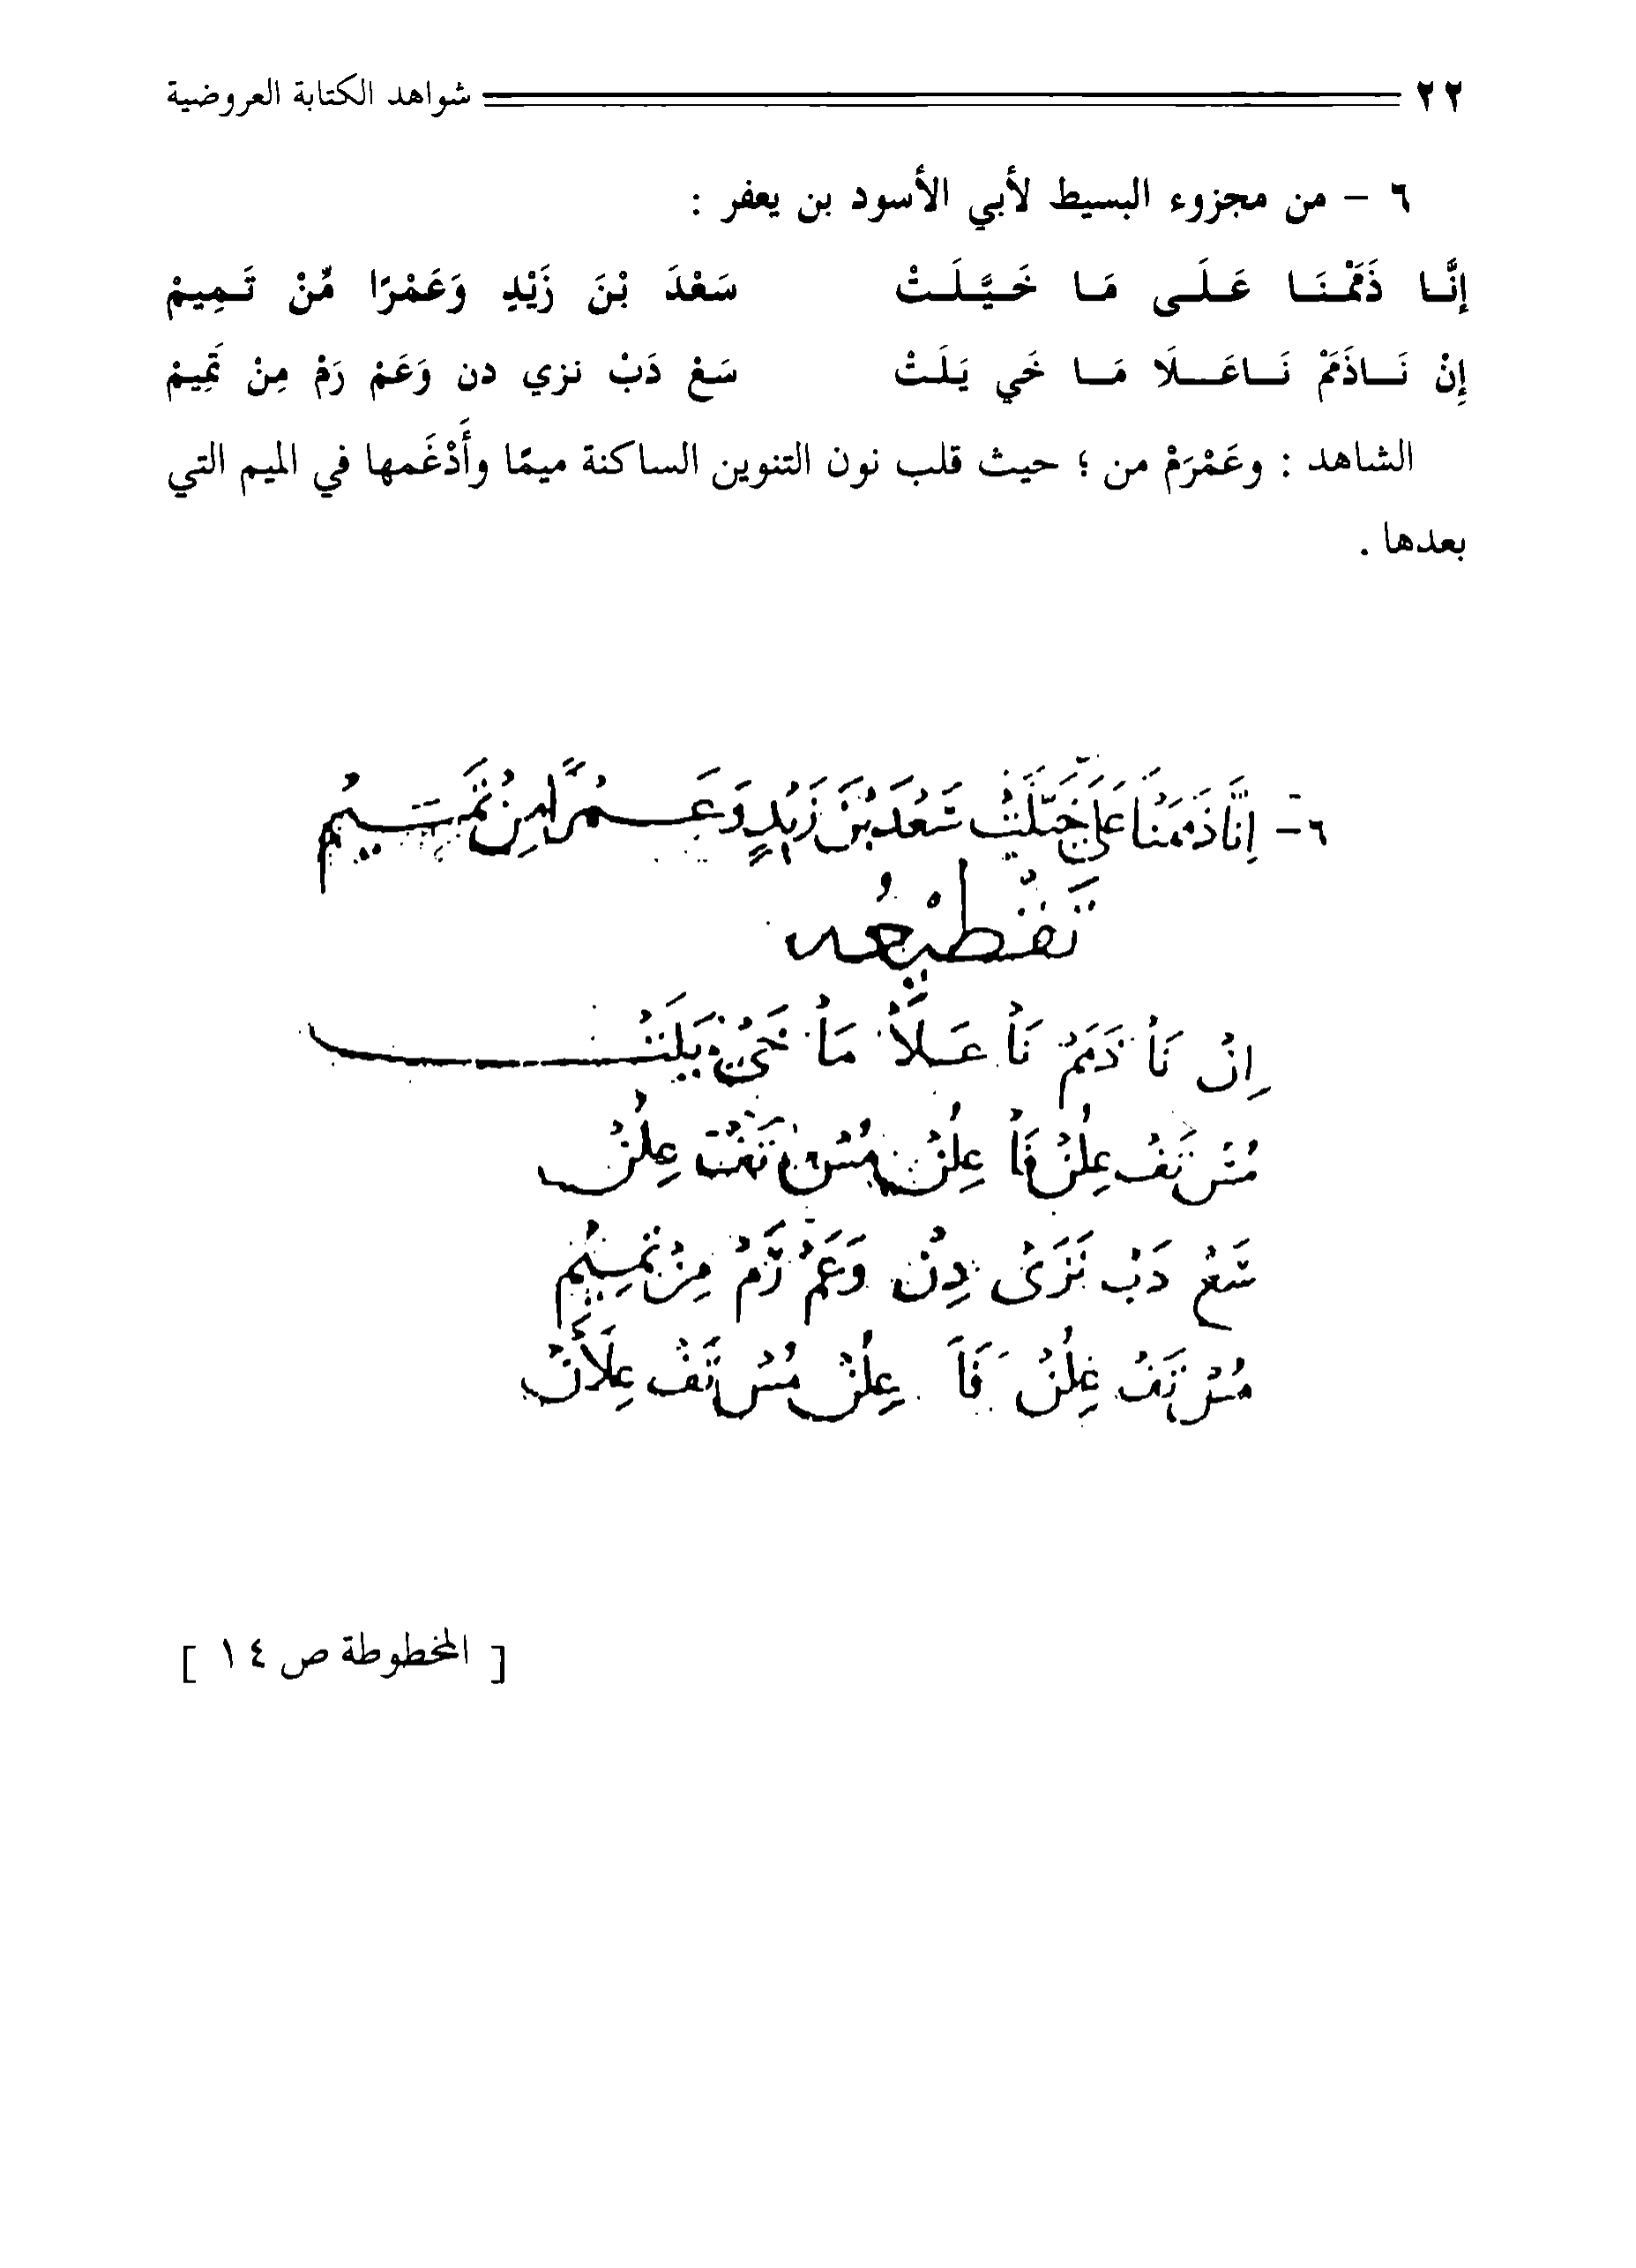 ٢٢ شواهد الكتابة العروضية
٦ – من مجزوء البسيط لأبي الأسود بن يعفر :
إنَّـا ذَمَمْـنَـا عَـلَـى مَـا خَـيَّـلَـتْ سَعْدَ بْنَ زَيْدٍ وَعَمْرًا مِّنْ تَـمِيمْ
إِنْ نَـاذَمَمْ نَـاعَـلَا مَـا خَي يَلَتْ سَعْ دَبْ نزي دن وَعَمْ رَمْ مِنْ تَمِيمْ
الشاهد : وعَمْرَمْ من ؛ حيث قلب نون التنوين الساكنة ميمًا وأَدْغَمها في الميم التي
بعدها .
٦- اِنَّا ذَمَمْنَا عَلَى خَيَّلَتْ سَعْدَ بْنَ زَيْدٍ وَعَـمْرًا مِنْ تَمِيمْ
تَقْطِيْعُه
اِنْ نَاْ ذَمَمْ نَاْ عَـلَاْ مَاْ خَىْ يَلَتْ
مُسْ تَفْ عِلُنْ فَاْ عِلُنْ مُسْ تَفْ عِلُنْ
سَعْ دَبْ نَزَىْ دِنْ وَعَمْ رَمْ مِنْ تَمِيْمْ
مُسْ تَفْ عِلُنْ فَاْ عِلُنْ مُسْ تَفْ عِلَاْنْ
[ المخطوطة ص ١٤ ]